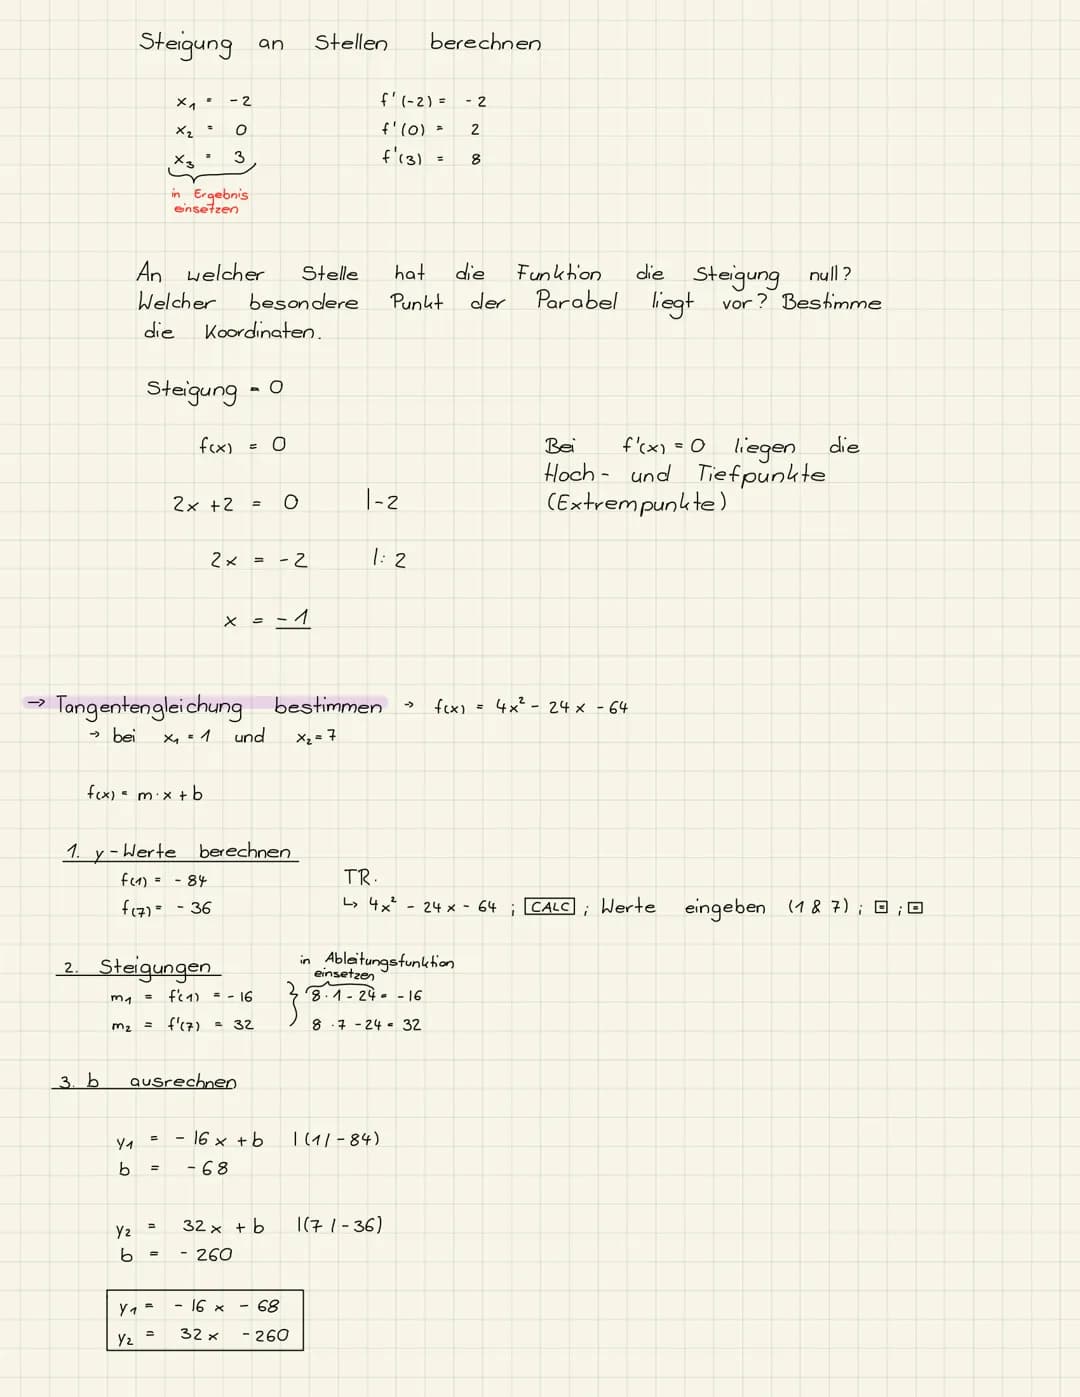 Steigung an Stellen berechnen
x₁ = -2 f'(-2) = -2
x₂ = 0 f'(0) = 2
x₃ = 3 f'(3) = 8
in Ergebnis
einsetzen
An welcher Stelle hat die Funktion die Steigung null?
Welcher besondere Punkt der Parabel liegt vor? Bestimme
die Koordinaten.
Steigung = 0
f(x) = 0
2x + 2 = 0 |-2
2x = -2 |: 2
x = -1
Bei f'(x) = 0 liegen die
Hoch- und Tiefpunkte
(Extrempunkte)
→ Tangentengleichung bestimmen → f(x) = 4x² - 24x - 64
→ bei x₁ = 1 und x₂ = 7
f(x) = m·x + b
1. y-Werte berechnen
f(1) = -84
f(7) = -36
TR.
↳ 4x² - 24x - 64 ; CALC ; Werte eingeben (1 & 7) ; = ; =
2. Steigungen
m₁ = f'(1) = -16
m₂ = f'(7) = 32
in Ableitungsfunktion
einsetzen
8·1 - 24 = -16
8·7 - 24 = 32
3. b ausrechnen
y₁ = -16x + b |(1/-84)
b = -68
y₂ = 32x + b |(7/-36)
b = -260
y₁ = -16x - 68
y₂ = 32x - 260